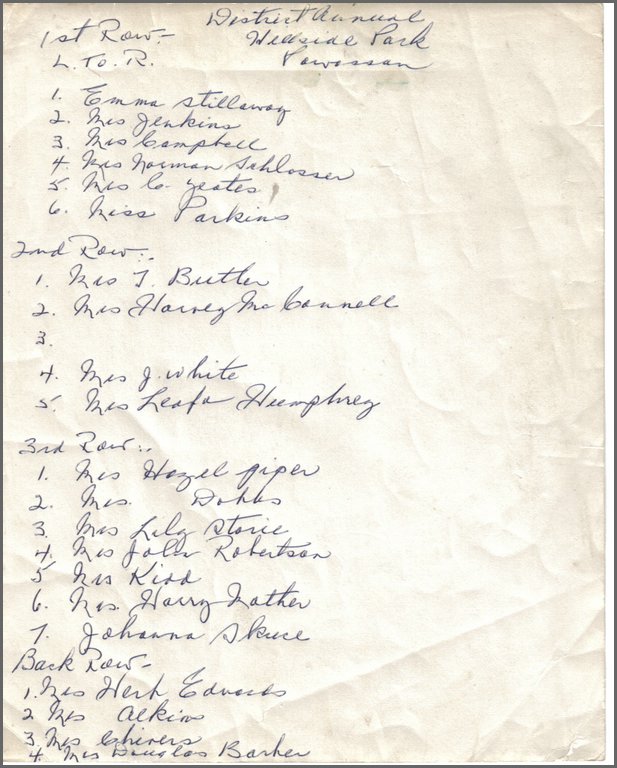 District Annual
1st Row:- Hillside Park
L. To. R. Powassan
1. Emma Stillaway
2. Mrs Jenkins
3. Mrs Campbell
4. Mrs Norman Schlosser
5. Mrs C. Yeates
6. Miss Parkins
2nd Row:.
1. Mrs T. Butler
2. Mrs Harvey McConnell
3.
4. Mrs J. White
5. Mrs Leafa Humphrey
3rd Row:.
1. Mrs Hazel Piper
2. Mrs.
3. Mrs Lily Storie
4. Mrs John Robertson
5 Mrs Kidd
6. Mrs. Harry Mather
7. Johanna Skuce
Back Row-
1. Mrs Herb Edwards
2 Mrs Alkins
3. Mrs Chivers
4. Mrs Douglas Barker